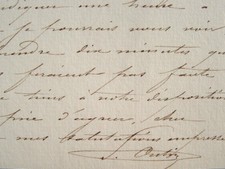 indiquer une heure à
je pourrais vous voir
prendre dix minutes qu
feraient pas faute
tiens à votre disposition
prie d'agréer, cher
mes salutations empressées